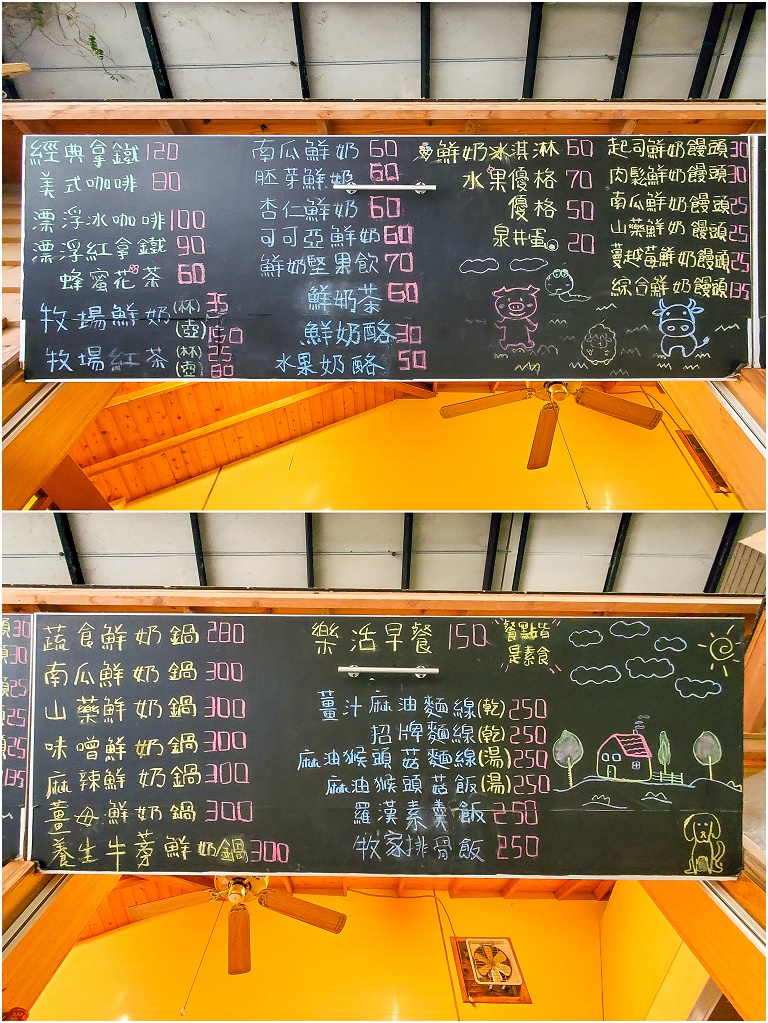 經典拿鐵120
美式咖啡80
漂浮冰咖啡100
漂浮紅拿鐵90
蜂蜜花茶60
牧場鮮奶(杯)35
(壺)150
牧場紅茶(杯)25
(壺)80
南瓜鮮奶60
胚芽鮮奶60
杏仁鮮奶60
可可亞鮮奶60
鮮奶堅果飲70
鮮奶茶60
鮮奶酪30
水果奶酪50
鮮奶冰淇淋60
水果優格70
優格50
泉井蛋20
起司鮮奶饅頭30
肉鬆鮮奶饅頭30
南瓜鮮奶饅頭25
山藥鮮奶饅頭25
蔓越莓鮮奶饅頭25
綜合鮮奶饅頭135
頭30
頭30
頭25
頭25
頭25
頭135
蔬食鮮奶鍋280
南瓜鮮奶鍋300
山藥鮮奶鍋300
味噌鮮奶鍋300
麻辣鮮奶鍋300
薑母鮮奶鍋300
養生牛蒡鮮奶鍋300
樂活早餐150
餐點皆
是素食
薑汁麻油麵線(乾)250
招牌麵線(乾)250
麻油猴頭菇麵線(湯)250
麻油猴頭菇飯(湯)250
羅漢素羹飯250
牧家排骨飯250